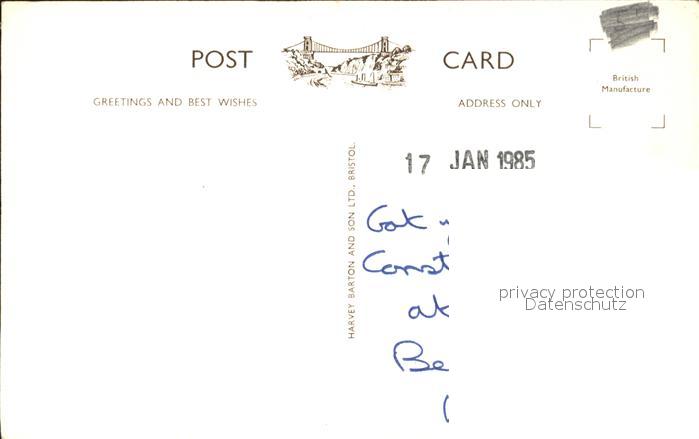 POST CARD
GREETINGS AND BEST WISHES
ADDRESS ONLY
British
Manufacture
17 JAN 1985
HARVEY BARTON AND SON LTD., BRISTOL.
Const
at
Be
privacy protection
Datenschutz